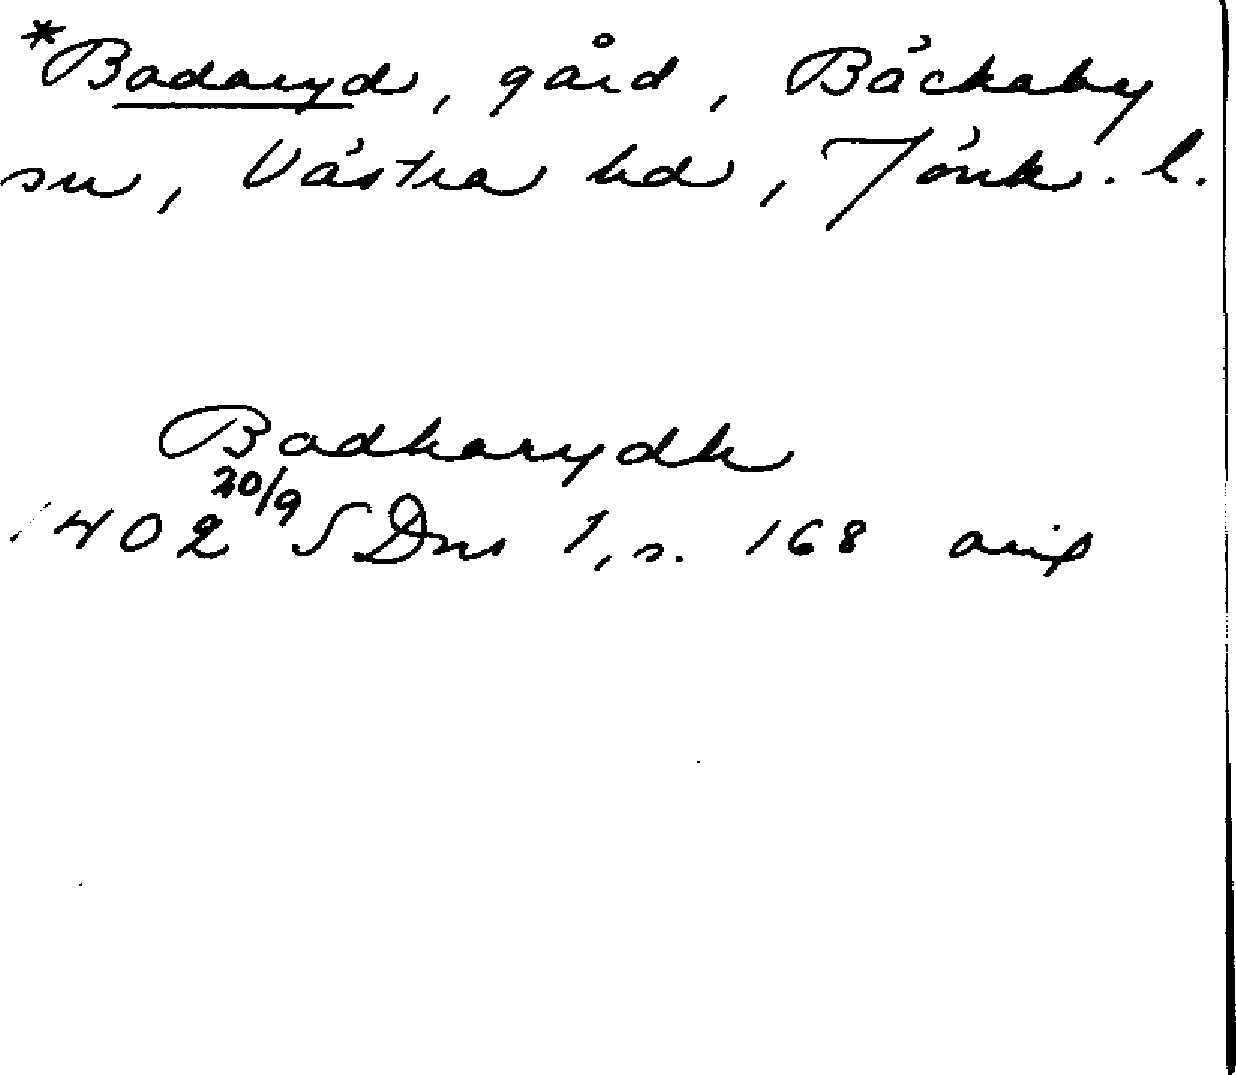 *Badaryd, gård, Bäckaby
sn, Västra hd, Jönk. l.
Badharydh
1402 20/9 SDns 1, s. 168 avs